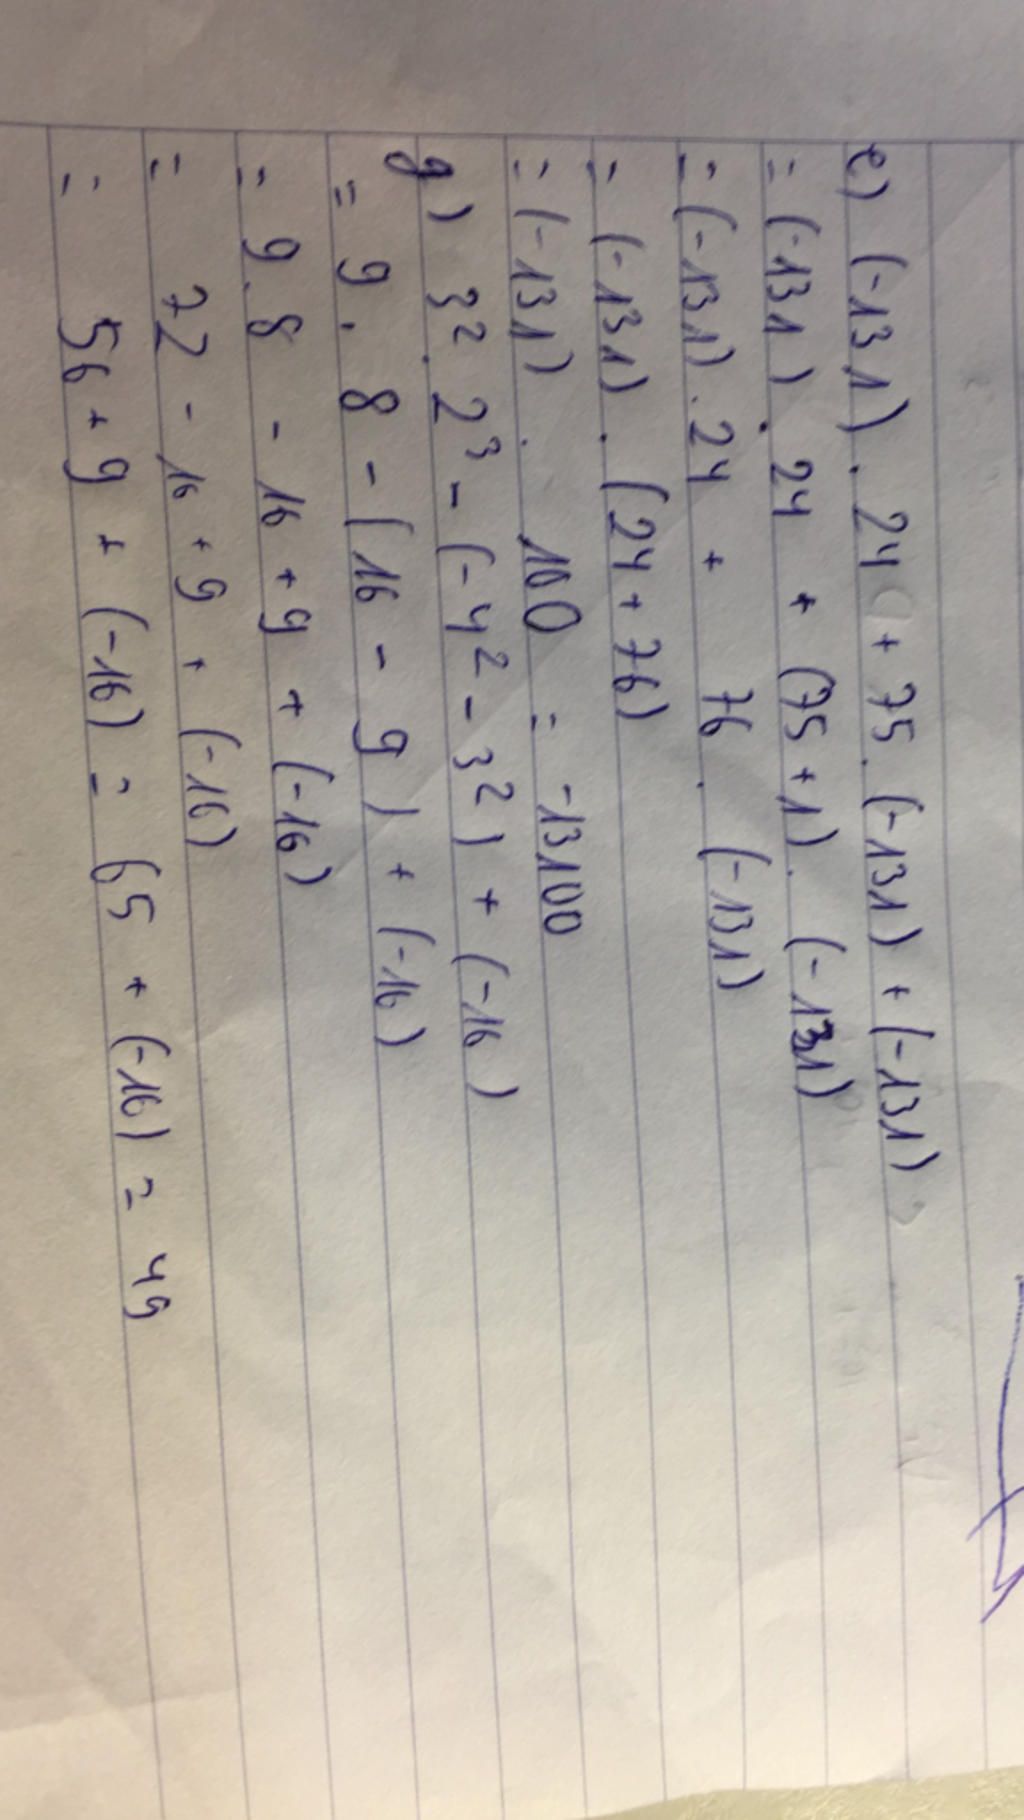 e) (-131) . 24 + 75 . (-131) + (-131)
= (-131) . 24 + (75 + 1) . (-131)
= (-131) . 24 + 76 . (-131)
= (-131) . (24 + 76)
= (-131) . 100 = -13100
g) 3² . 2³ - (-4² - 3²) + (-16)
= 9 . 8 - (16 - 9) + (-16)
= 9 . 8 - 16 + 9 + (-16)
= 72 - 16 + 9 + (-16)
= 56 + 9 + (-16) = 65 + (-16) = 49